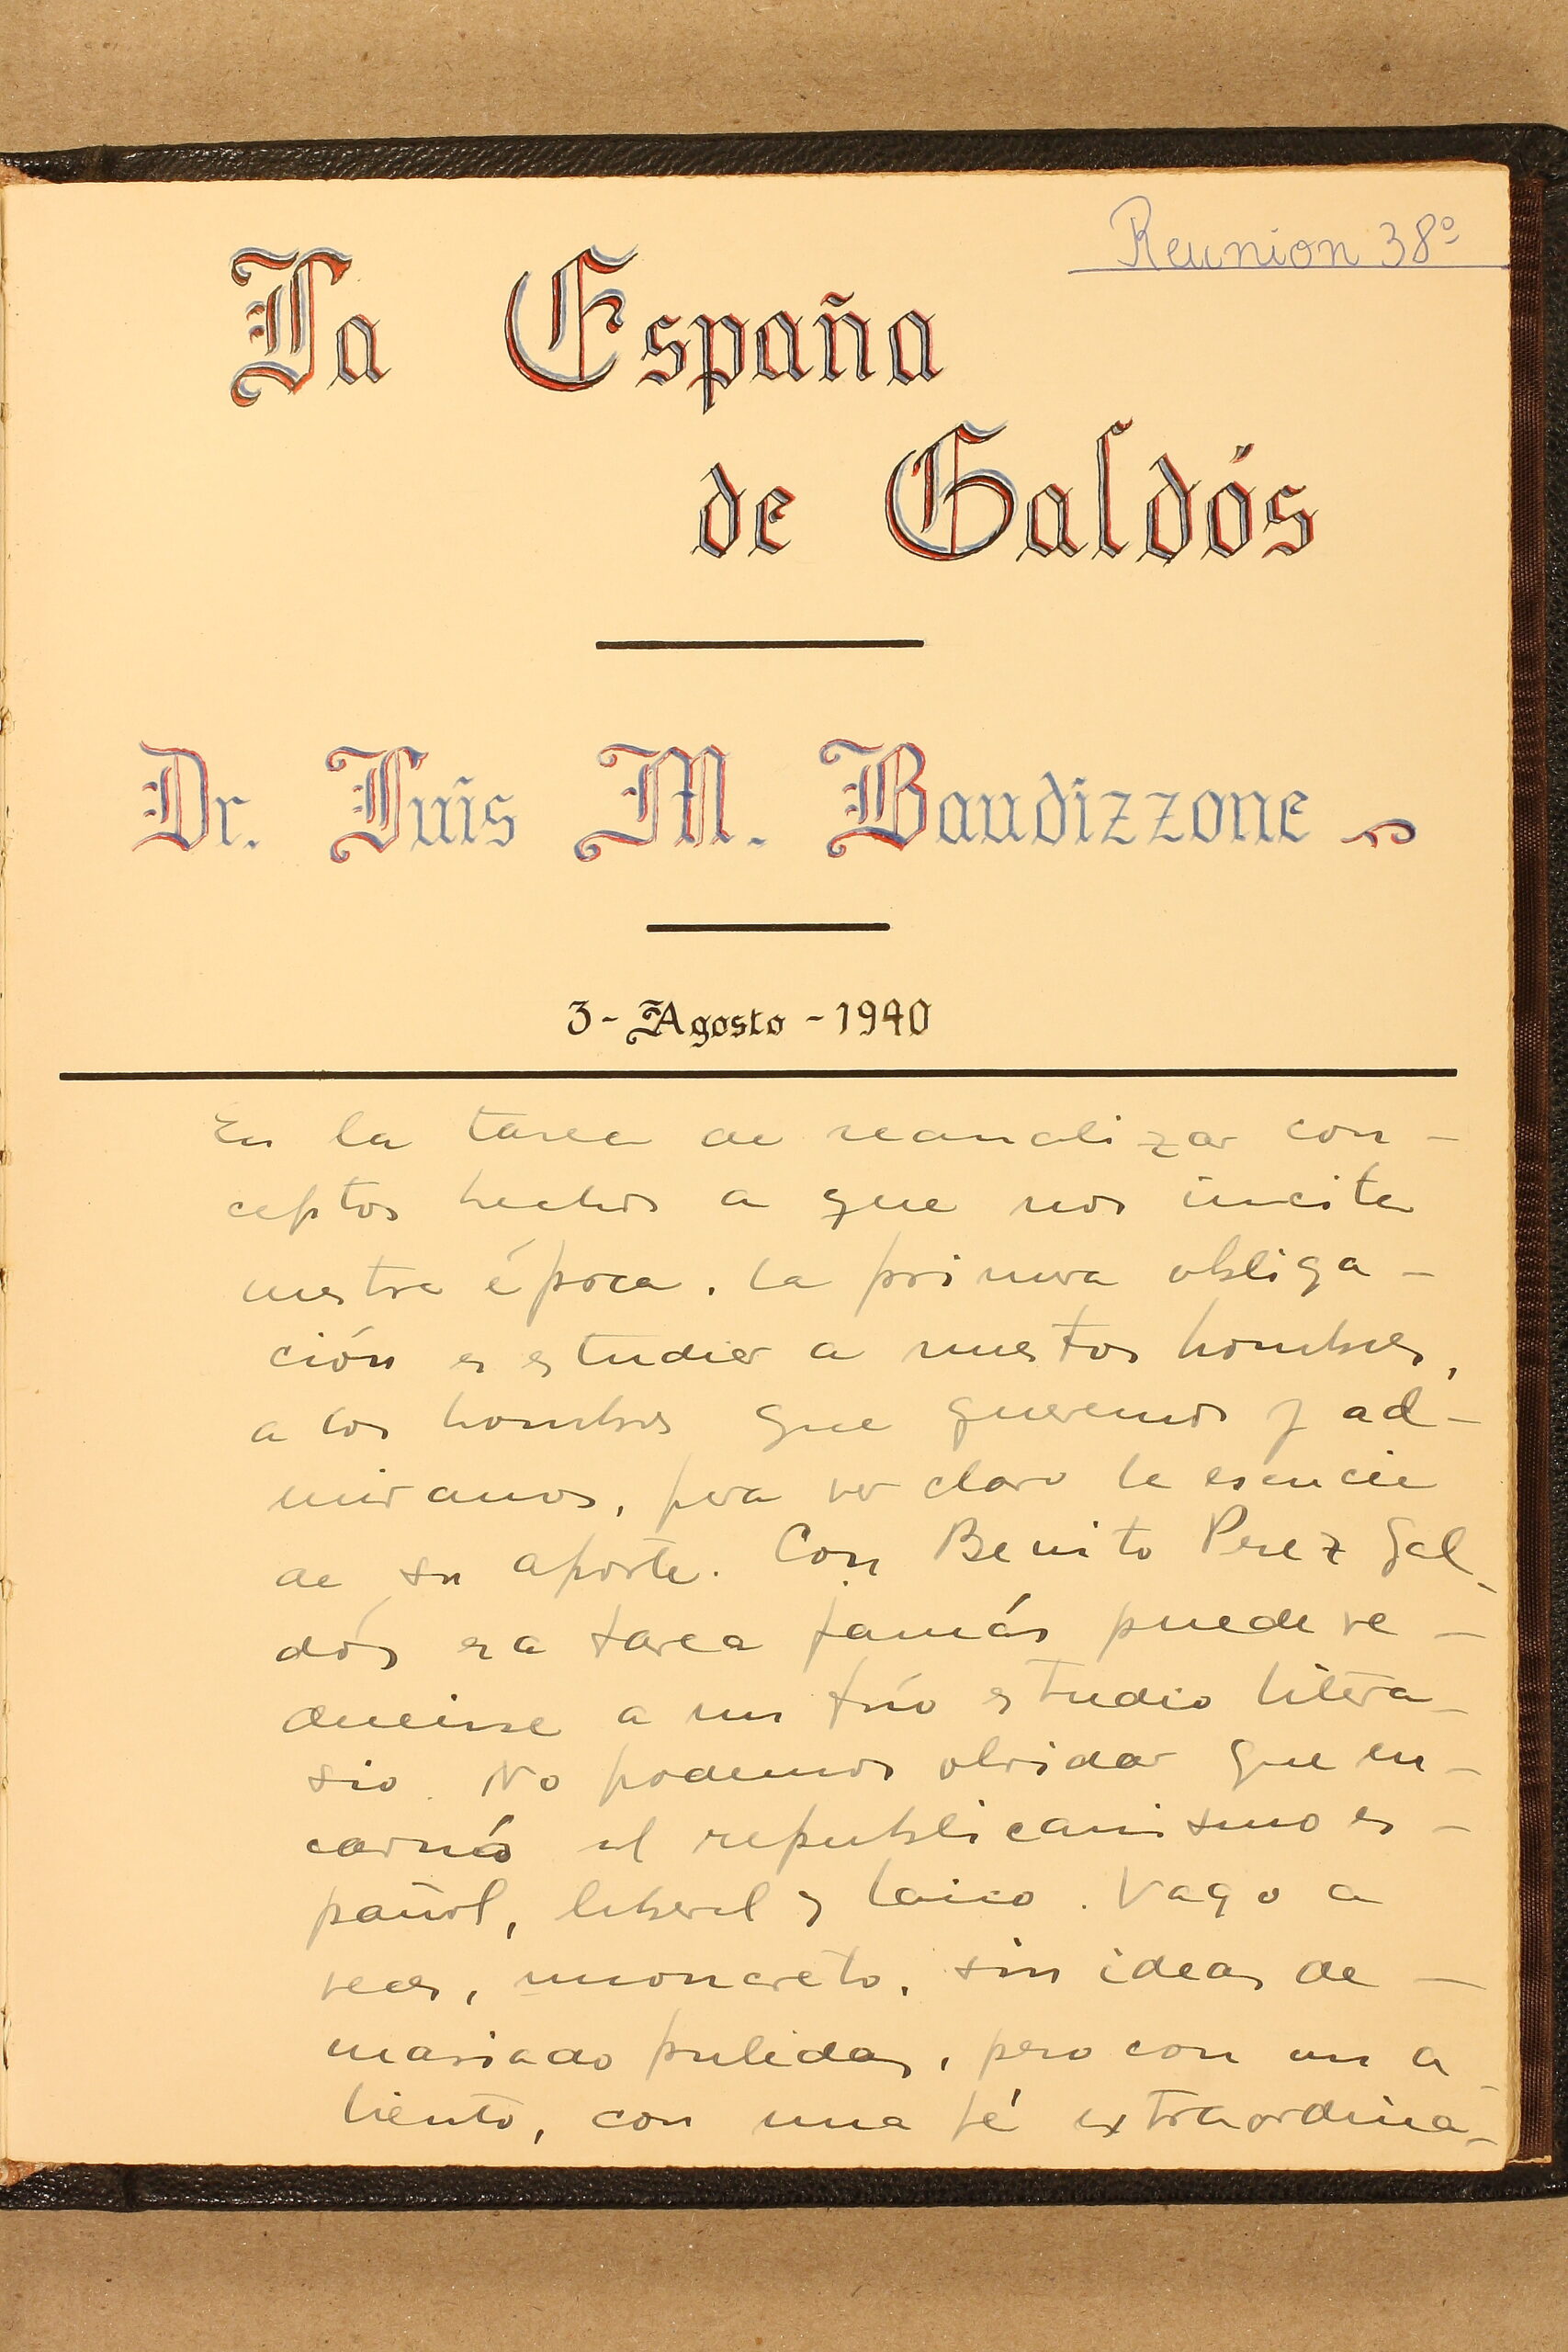 Reunion 38º
La España
de Galdós
Dr. Luis M. Baudizzone
3 - Agosto - 1940
En la tarea de reanalizar con -
ceptos hechos a que nos incita
nuestra época, la primera obliga -
ción es estudiar a nuestros hombres,
a los hombres que queremos y ad -
miramos, para ver claro la esencia
de su aporte. Con Benito Perez Gal -
dós esa tarea jamás puede re -
ducirse a un frío estudio litera -
rio. No podemos olvidar que en -
carnó el republicanismo es -
pañol, liberal y laico. Vago a
veces, inconcreto, sin ideas de -
masiado pulidas, pero con un a -
liento, con una fé extraordina -